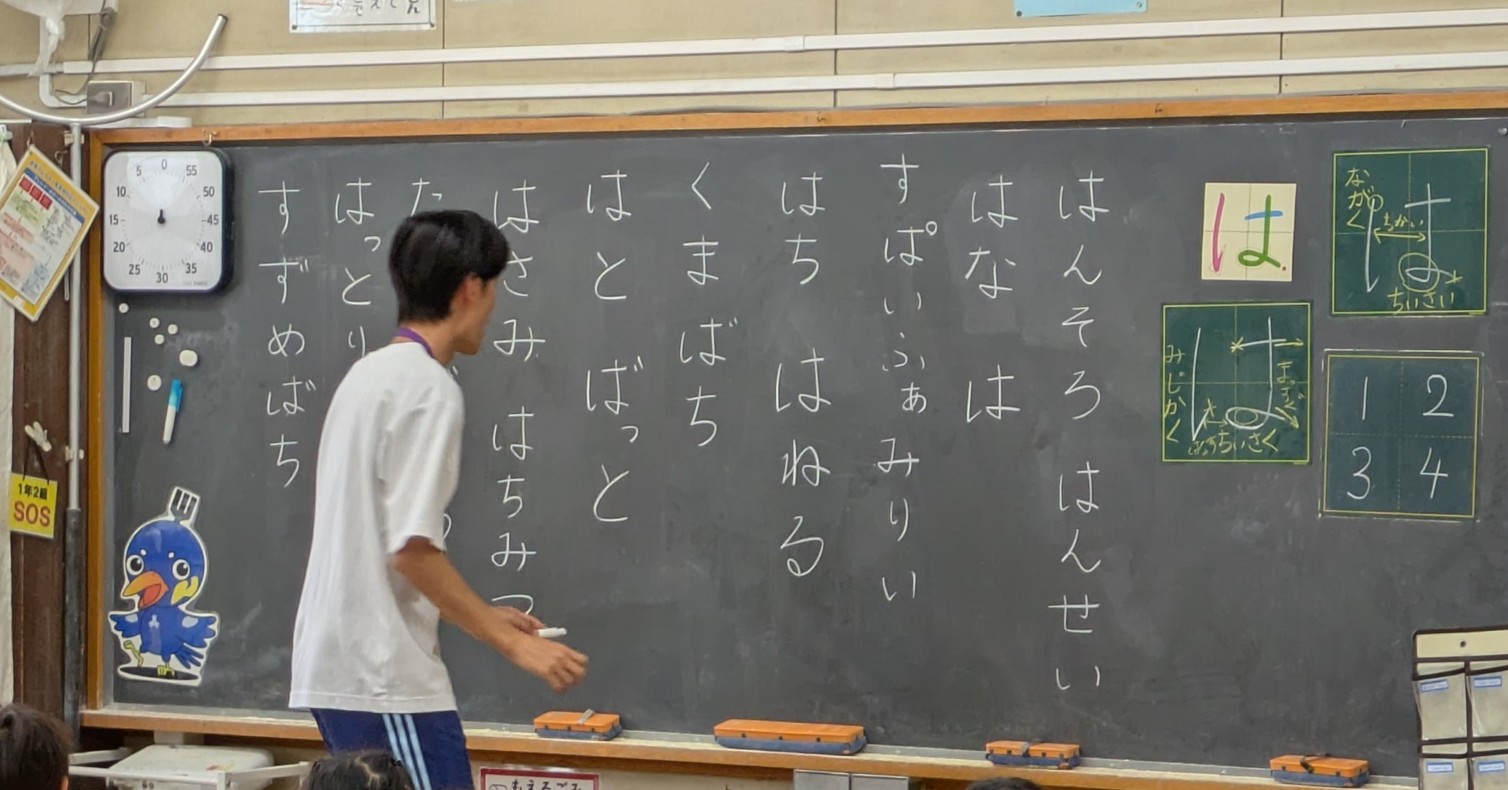 ながく
ちかい
ちいさい
は
みじかく
まっすぐ
ちいさく
1 2
3 4
はんそろ はんせい
はな は
すぱいふぁみりい
はち はねる
くま ばち
はと ばっと
はさみ はちみつ
た
はっとり
すずめばち
0 55 50 45 40 35 30 25 20 15 10 5
1年2組
SOS
もえるごみ